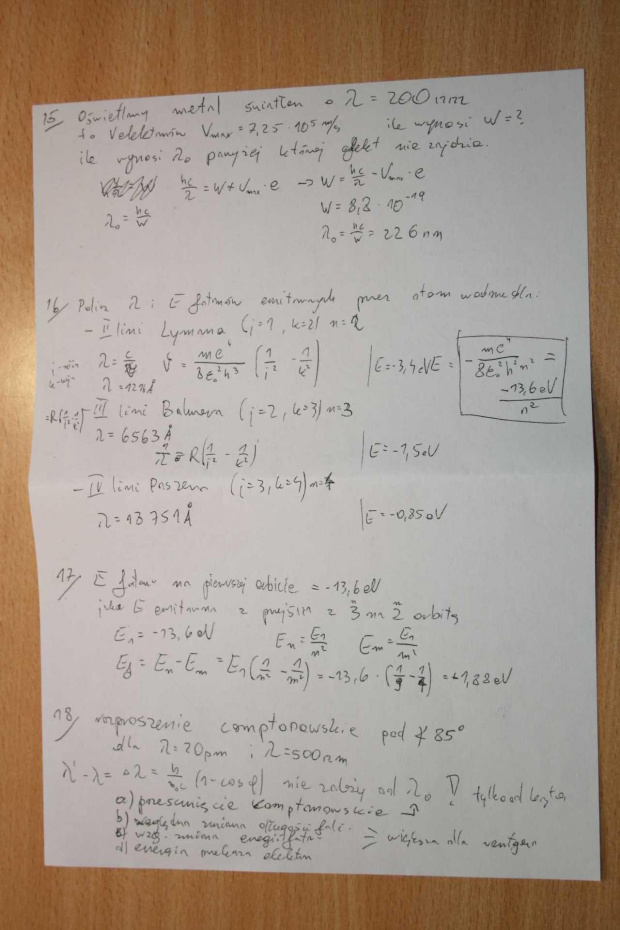 15 Oświetlamy metal światłem o λ = 200 nm
to V elektronów Vmax = 7,25 · 10⁵ m/s ile wynosi W = ?
ile wynosi λ₀ powyżej której efekt nie zajdzie.
hc/λ = W + Vmax · e → W = hc/λ - Vmax · e
λ₀ = hc/W
W = 8,8 · 10⁻¹⁹
λ₀ = hc/W = 226 nm
16/ Policz λ i E fotonów emitowanych przez atom wodoru dla:
- II linii Lymana (i=1, k=2) n=2
λ = c/ν ν = me⁴/8ε₀²h³ (1/i² - 1/k²) | E = -3,4 eV E = - me⁴/8ε₀²h²n² = -13,6 eV/n²
= R(1/i² - 1/k²)
- III linii Balmera (i=2, k=3) n=3
λ = 6563 Å
1/λ = R(1/i² - 1/k²) | E = -1,5 eV
- IV linii Paszena (i=3, k=4) n=4
λ = 13 751 Å | E = -0,85 eV
17/ E fotonu na pierwszej orbicie = -13,6 eV
jaka E emitowana z przejścia z 3 na 2 orbitę
E₁ = -13,6 eV Eₙ = E₁/n² Eₘ = E₁/m²
E_f = Eₙ - Eₘ = E₁(1/n² - 1/m²) = -13,6 · (1/9 - 1/4) = +1,88 eV
18/ rozproszenie comptonowskie pod ∢ 85°
dla λ = 20 pm i λ = 500 nm
λ' - λ = Δλ = h/m₀c (1 - cos φ) nie zależy od λ₀ ! tylko od kąta
a) przesunięcie komptonowskie
b) względna zmiana długości fali
c) wzg. zmiana energii fotonu > większa dla rentgena
d) energia elektronu